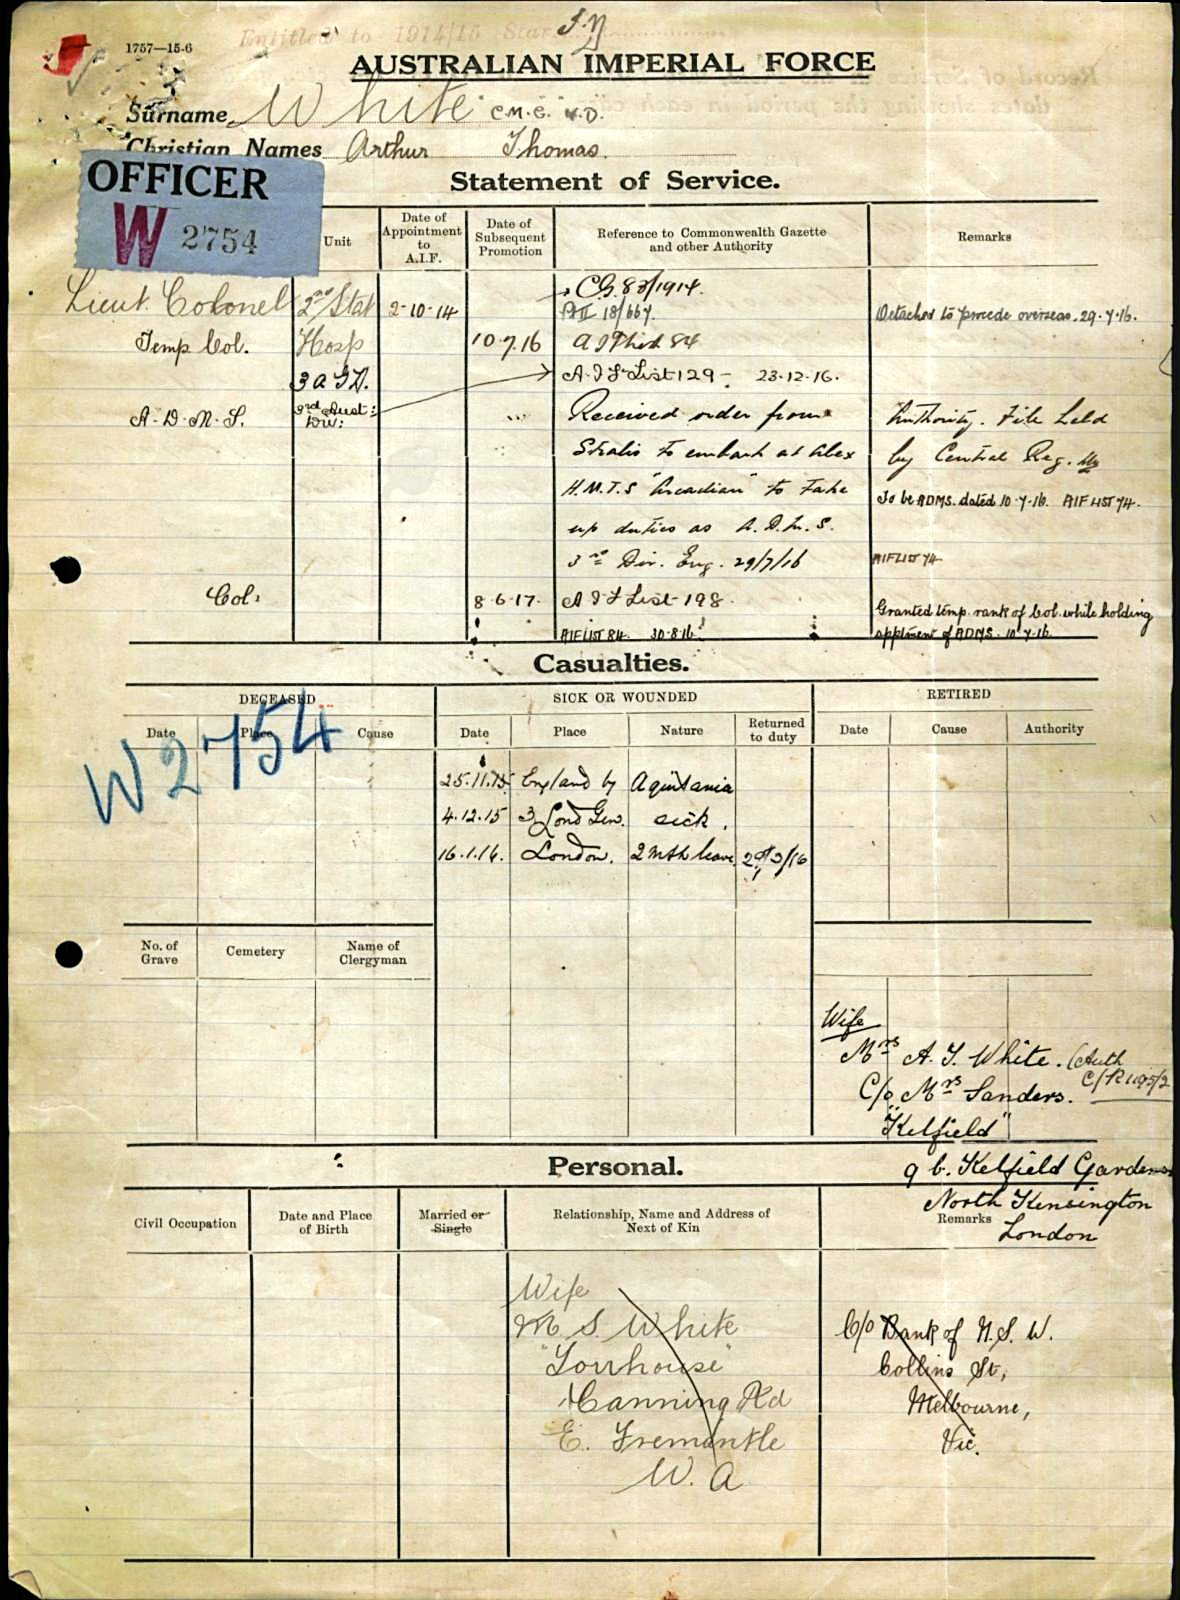 1757—15-6
Entitled to 1914/15 Star
AUSTRALIAN IMPERIAL FORCE
Surname White C.M.G. V.D.
Christian Names Arthur Thomas.
OFFICER
W 2754
Statement of Service.
Unit
Date of Appointment to A.I.F.
Date of Subsequent Promotion
Reference to Commonwealth Gazette and other Authority
Remarks
C.G. 83/1914.
Lieut. Colonel 2nd Stat 2-10-14 18/667. Detached to procede overseas. 29.7.16.
Temp Col. Hosp 10.7.16 84
3 A G H. A.I.F List 129 - 23.12.16.
A.D.M.S. 3rd Aust: Div: Received order from Authority. File held
to embark at Alex by Central Reg.
H.M.T.S "Arcadian" to take To be ADMS. dated 10.7.16. AIF LIST 74.
up duties as A.D.M.S.
3rd Div. Eng. 29/7/16 AIF LIST 74
Col: 8.6.17. A I F List 198. Granted temp. rank of Col. while holding
AIF LIST 84. 30.8.16. apptment of ADMS. 10.7.16.
Casualties.
DECEASED
SICK OR WOUNDED
RETIRED
Date Place Cause
Date Place Nature Returned to duty
Date Cause Authority
W2754
25.11.15 England by Aquitania
4.12.15 3 Lond Gen. sick.
16.1.16. London. 2 mth leave /3/16
No. of Grave
Cemetery
Name of Clergyman
Wife
Mrs A. T. White. (Auth
C/o Mrs Sanders.
"Kelfield"
9 b. Kelfield Gardens
North Kensington
London
Personal.
Civil Occupation
Date and Place of Birth
Married or Single
Relationship, Name and Address of Next of Kin
Remarks
Wife
M S White C/o Bank of N.S.W.
Collins St,
Canning Rd Melbourne,
E. Fremantle Vic.
W. A